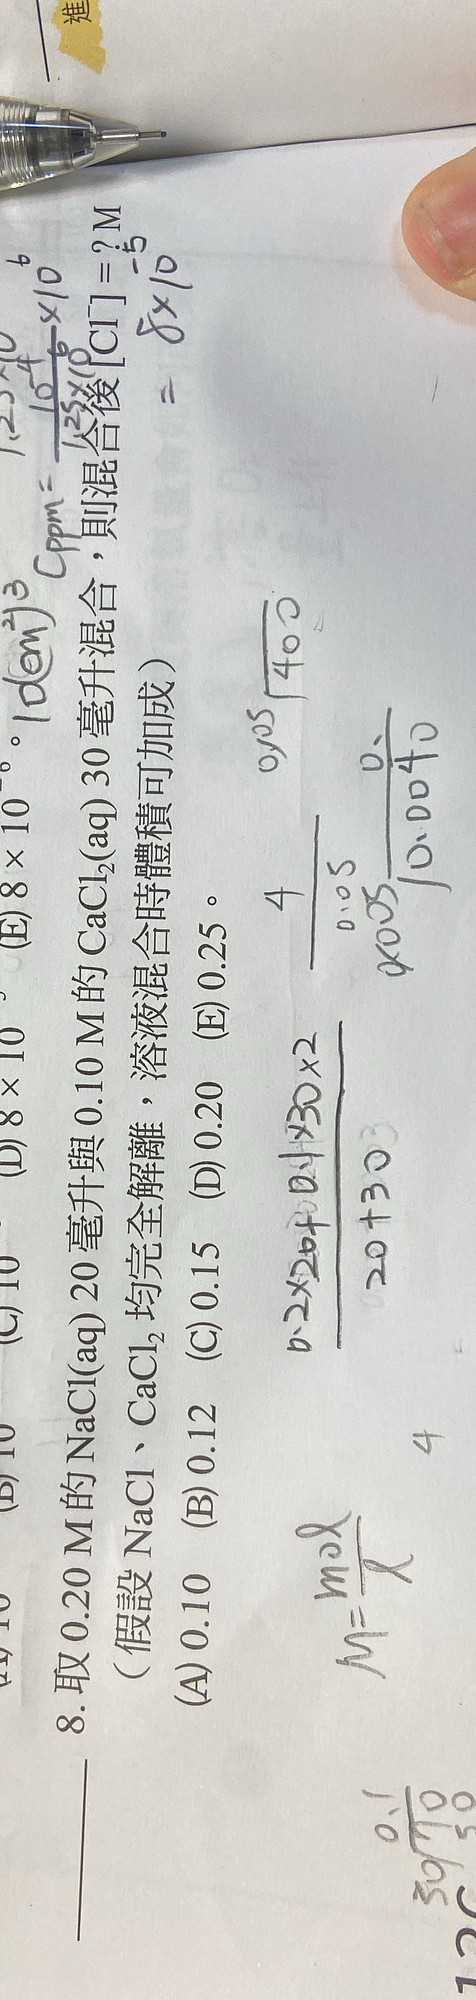 進
1.25×10
Cppm = 10⁻⁴ / 1.25×10⁶ ×10⁶
= 8×10⁻⁵
(D) 8 × 10 (E) 8 × 10⁻⁶。
8. 取 0.20 M 的 NaCl(aq) 20 毫升與 0.10 M 的 CaCl₂(aq) 30 毫升混合，則混合後 [Cl⁻] = ? M
（假設 NaCl、CaCl₂ 均完全解離，溶液混合時體積可加成）
(A) 0.10 (B) 0.12 (C) 0.15 (D) 0.20 (E) 0.25。
0.2×20+0.1×30×2
20+30
4
0.05
0.05 400
0.
0.0040
M = mol / l
4
0.1